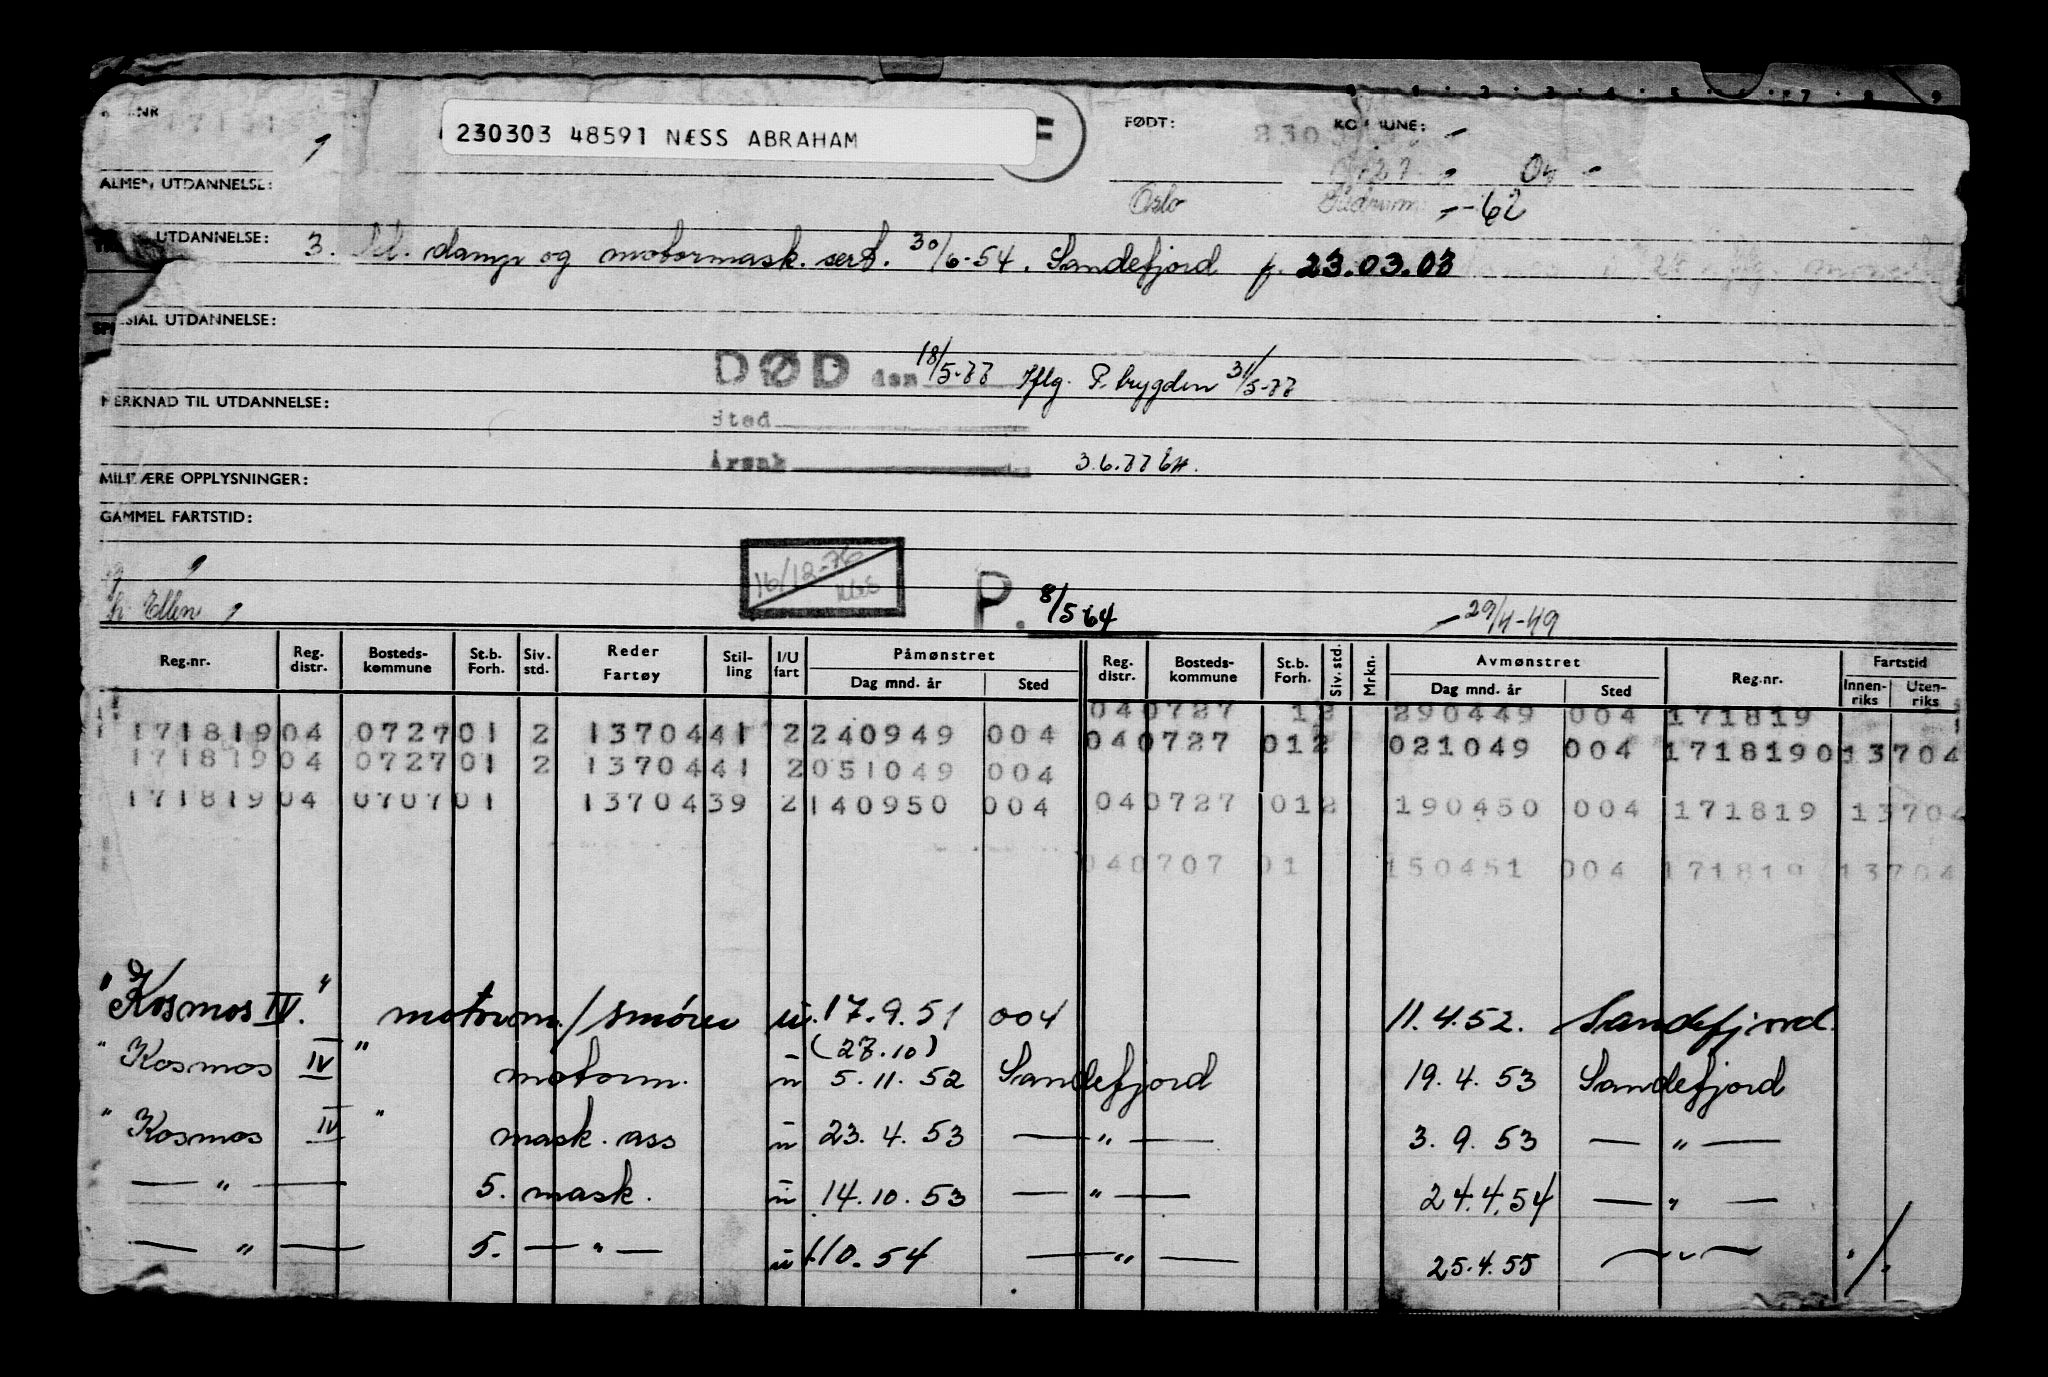 230303 48591 NÆSS ABRAHAM
FØDT: KOMMUNE:
ALMEN UTDANNELSE: Oslo -62
UTDANNELSE: 3. kl. damp og motormask. sert. 30/6-54. Sandefjord f. 23.03.03
SPESIAL UTDANNELSE:
DØD den 18/5-77 Iflg. P. trygden 31/5-77
MERKNAD TIL UTDANNELSE:
Sted
Årsak 3.6.77
MILITÆRE OPPLYSNINGER:
GAMMEL FARTSTID:
16/12-76
h. Ellen P. 8/5 64 29/4-49
Reg.nr. Reg. distr. Bosteds-kommune St.b. Forh. Siv. std. Reder Fartøy Stil-ling I/U fart Påmønstret Dag mnd. år Sted Reg. distr. Bosteds-kommune St.b. Forh. Siv. std. Mrkn. Avmønstret Dag mnd. år Sted Reg.nr. Fartstid Innen-riks Uten-riks
040727 12 290449 004 171819
171819 04 0727 01 2 13704 41 2 240949 004 040727 012 021049 004 171819 0 13704
171819 04 0727 01 2 13704 41 2 051049 004
171819 04 0707 01 13704 39 2 140950 004 040727 012 190450 004 171819 13704
040707 01 150451 004 171819 13704
"Kosmos IV." motorm./smører u. 17.9.51 004 11.4.52. Sandefjord.
(27.10)
"Kosmos IV" motorm. u 5.11.52 Sandefjord 19.4.53 Sandefjord
"Kosmos IV" mask. ass u 23.4.53 — " — 3.9.53 — " —
— " — 5. mask. u 14.10.53 — " — 24.4.54 — " —
— " — 5. — " — u 1.10.54 — " — 25.4.55 — " — ./.